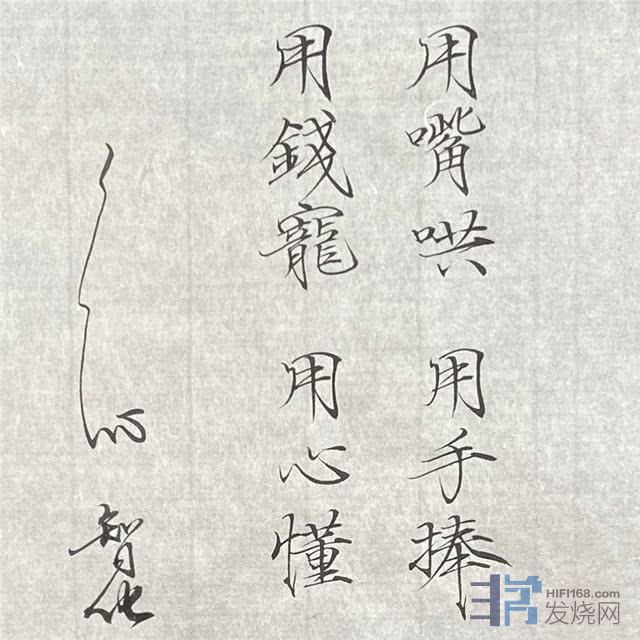 用嘴哄 用手捧
用錢寵 用心懂
智化
HIFI168.com
发烧网